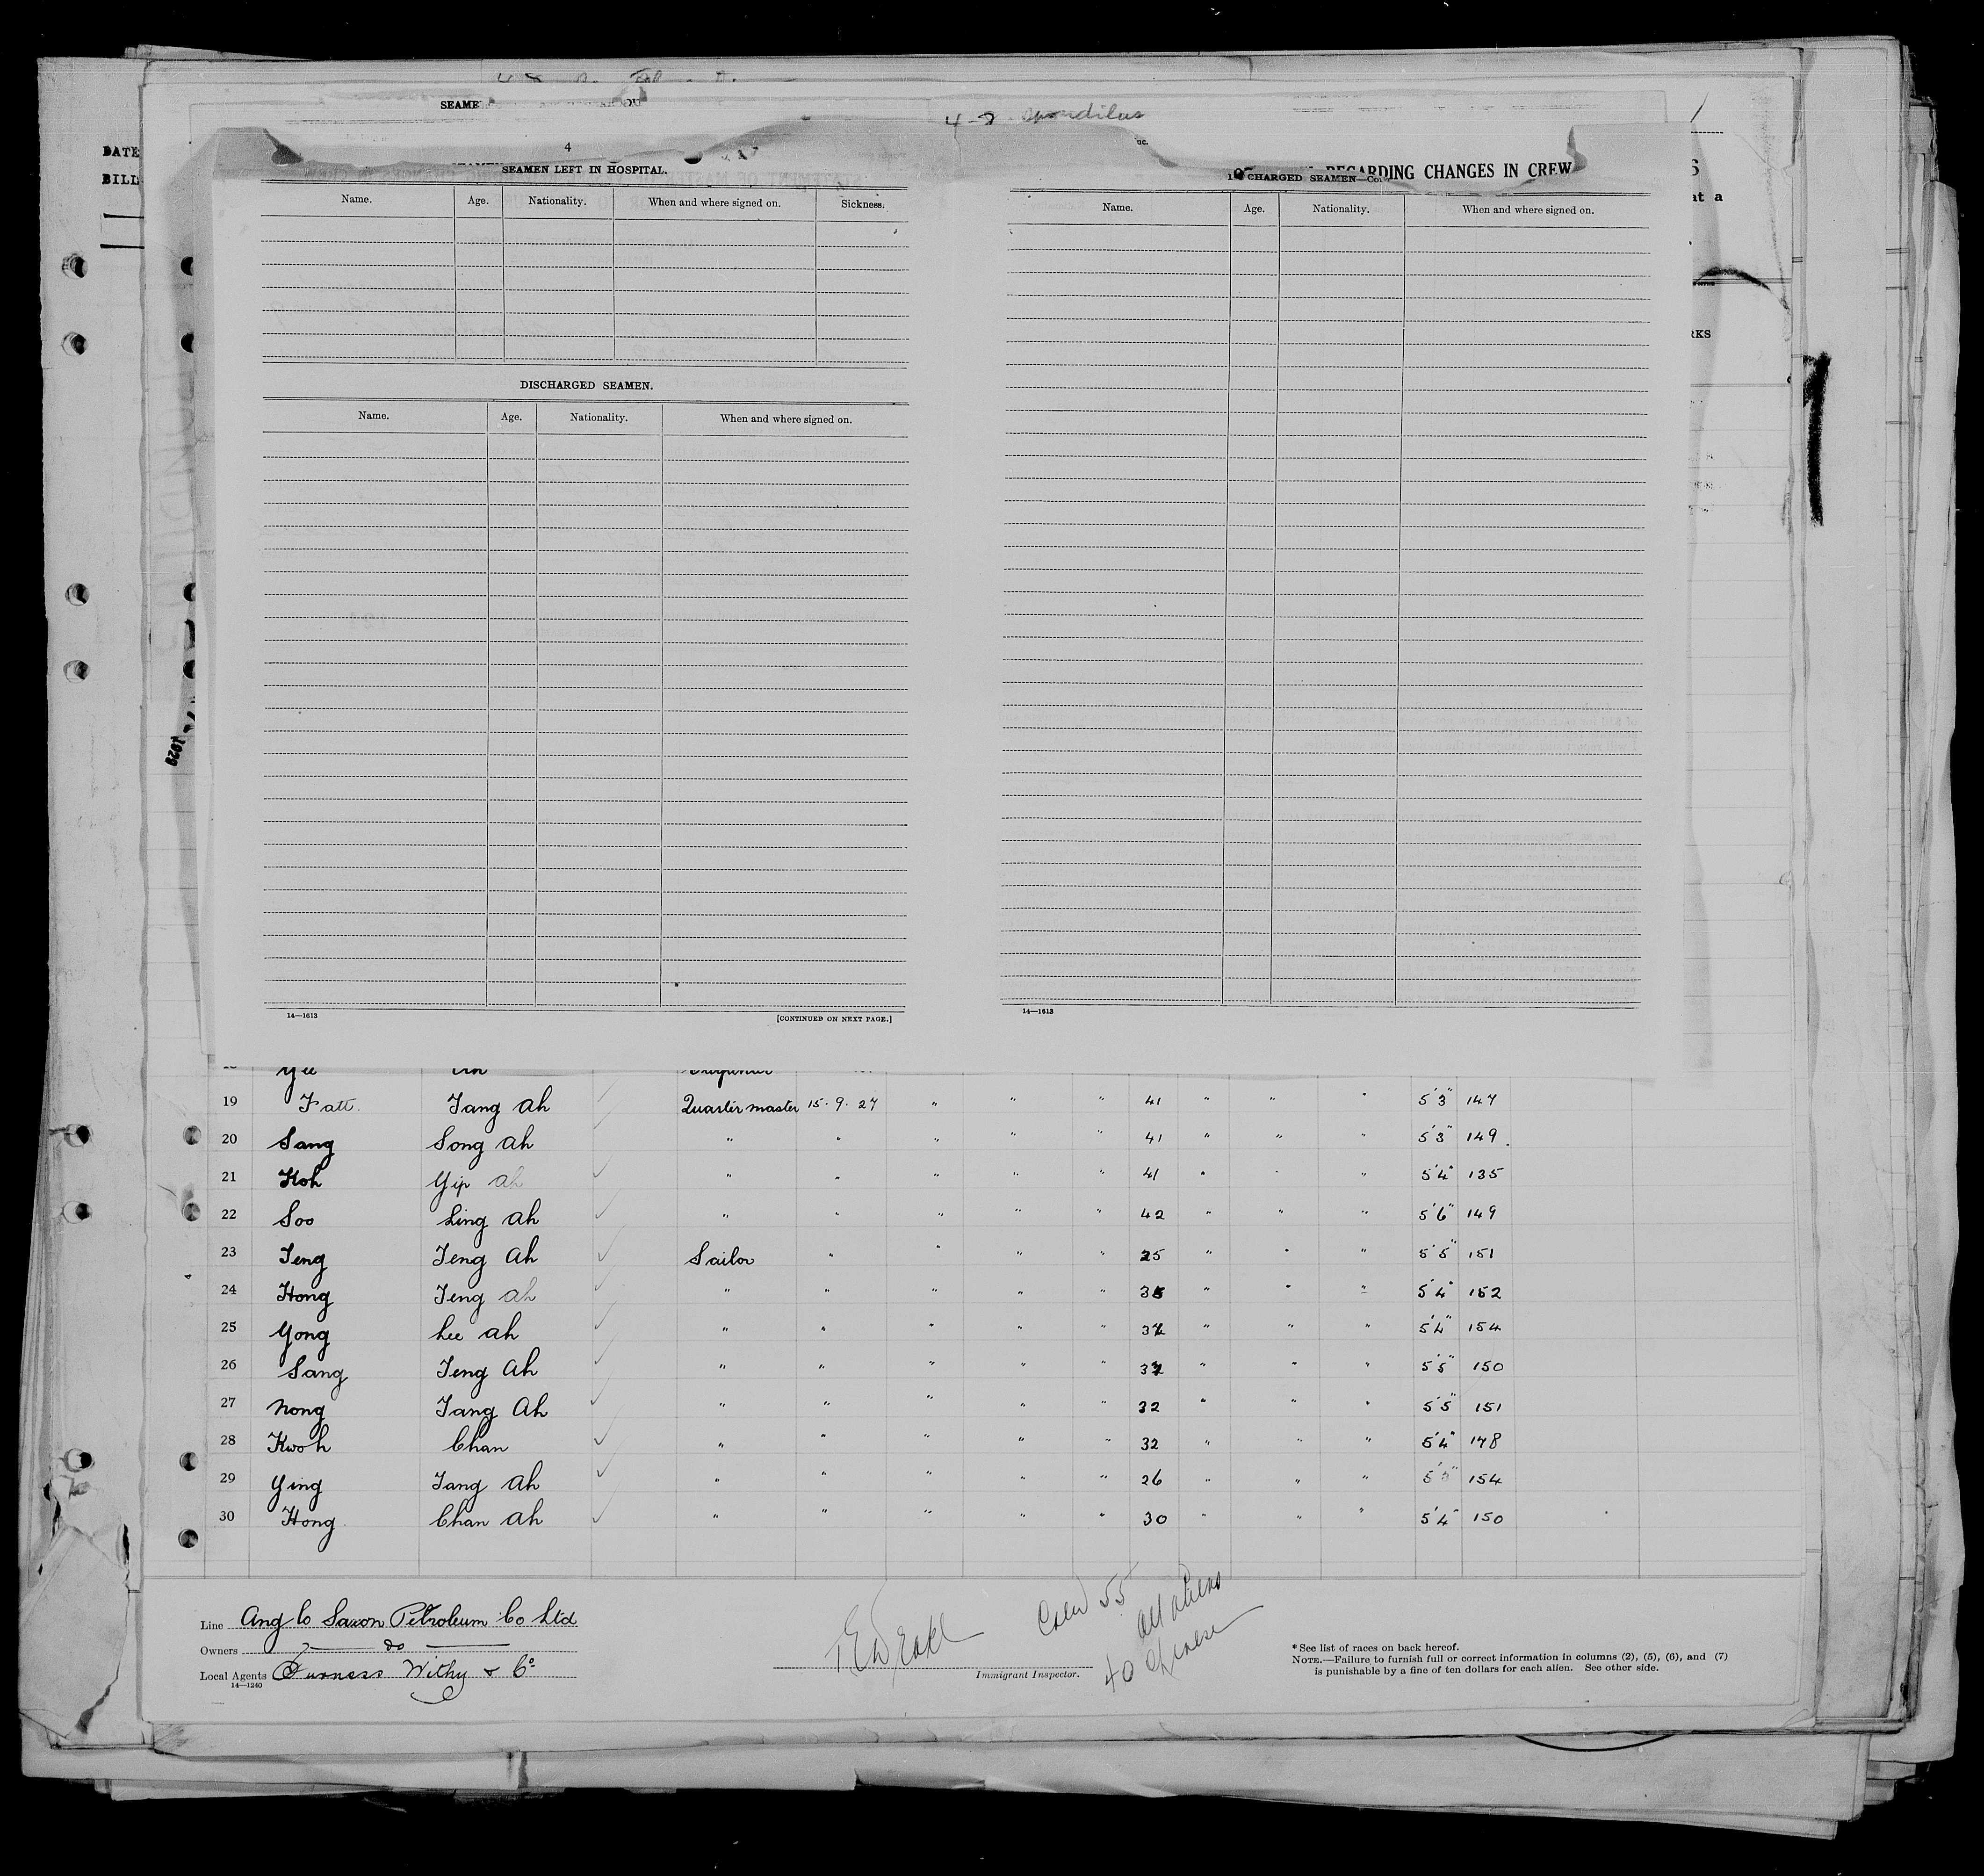 4-8 Spondilus
DATE
BILL
SEAME
4
SEAMEN LEFT IN HOSPITAL.
Name. Age. Nationality. When and where signed on. Sickness.
DISCHARGED SEAMEN.
Name. Age. Nationality. When and where signed on.
14—1613 [CONTINUED ON NEXT PAGE.]
REGARDING CHANGES IN CREW
CHARGED SEAMEN—Co
Name. Age. Nationality. When and where signed on.
14—1613
at a
RKS
1929
Yee Ah Carpenter
19 Fatt. Tang Ah Quartermaster 15.9.27 " " " 41 " " " 5'3" 147
20 Sang Song Ah " " " " " 41 " " " 5'3" 149
21 Koh Yip Ah " " " " " 41 " " " 5'4" 135
22 Soo Ling Ah " " " " " 42 " " " 5'6" 149
23 Teng Teng Ah Sailor " " " " 25 " " " 5'5" 151
24 Hong Teng Ah " " " " " 35 " " " 5'4" 152
25 Yong Lee Ah " " " " " 32 " " " 5'4" 154
26 Sang Teng Ah " " " " " 32 " " " 5'5" 150
27 Nong Tang Ah " " " " " 32 " " " 5'5" 151
28 Kwoh Chan " " " " " 32 " " " 5'4" 148
29 Ying Tang Ah " " " " " 26 " " " 5'5" 154
30 Hong Chan Ah " " " " " 30 " " " 5'4" 150
Line Anglo Saxon Petroleum Co Ltd
Owners do
Local Agents Furness Withy & Co
14—1240
Immigrant Inspector.
Crew 55
all aliens
40 Chinese
*See list of races on back hereof.
NOTE.—Failure to furnish full or correct information in columns (2), (5), (6), and (7)
is punishable by a fine of ten dollars for each alien. See other side.